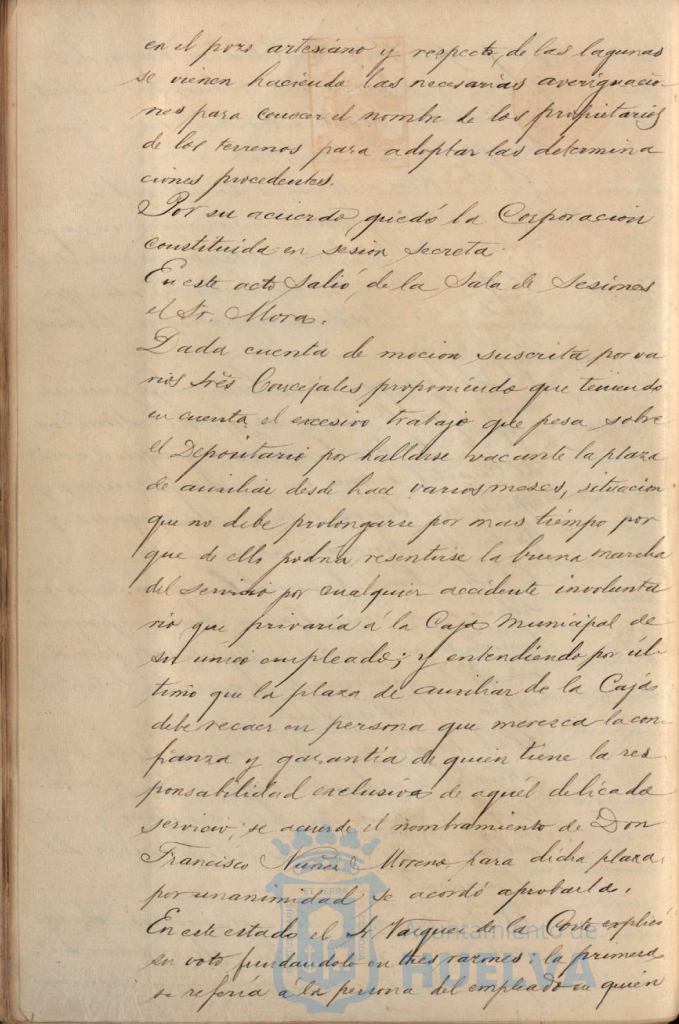 en el pozo artesiano y respecto, de las lagunas
se vienen haciendo las necesarias averiguacio-
nes para conocer el nombre de los propietarios
de los terrenos para adoptar las determina
ciones procedentes.
Por su acuerdo, quedó la Corporacion
constituida en sesion secreta.
En este acto salió, de la Sala de Sesiones
el Sr. Mora.
Dada cuenta de mocion suscrita por va
rios Sres Concejales proponiendo que teniendo
en cuenta el excesivo trabajo que pesa sobre
el Depositario por hallarse vacante la plaza
de auxiliar desde hace varios meses, situacion
que no debe prolongarse por mas tiempo por
que de ello podria resentirse la buena marcha
del servicio por cualquier accidente involunta
rio, que privaría á la Caja Municipal de
su unico empleado; y entendiendo por úl-
timo que la plaza de auxiliar de la Caja
debe recaer en persona que merezca la con-
fianza y garantía de quien tiene la res-
ponsabilidad exclusiva de aquél delicado
servicio; se acuerde el nombramiento de Don
Francisco Nuñez Moreno para dicha plaza,
por unanimidad se acordó aprobarla.
En este estado el Sr Vazquez de la Corte explicó
su voto fundandolo en tres razones: la primera
se referia á la persona del empleado en quien
Ayuntamiento de
HUELVA